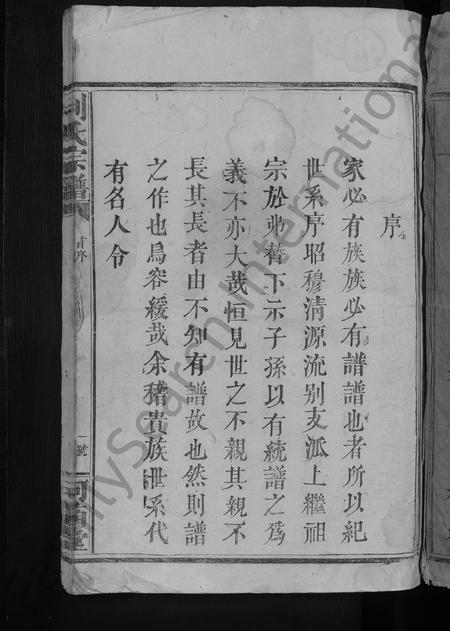 序
家必有族族必有譜譜也者所以紀
世系序昭穆清源流别支派上繼祖
宗於弗替下示子孫以有統譜之為
義不亦大哉恒見世之不親其親不
長其長者由不知有譜故也然則譜
之作也烏容緩哉余稽貴族世系代
有名人令
劉氏宗譜
首序
一號